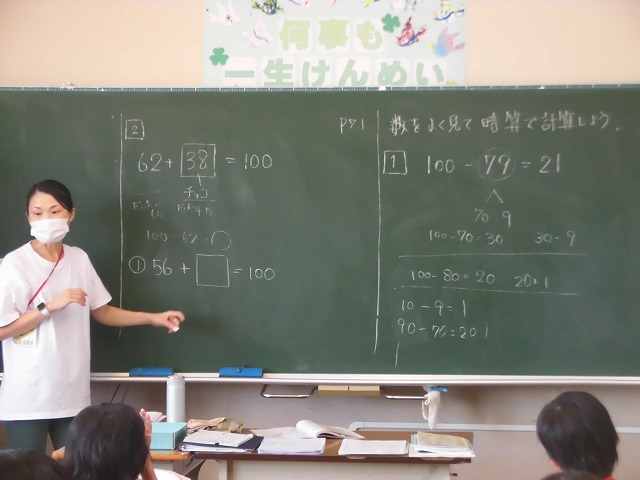 何事も
一生けんめい
P71
数をよく見て 暗算で計算しよう。
1
100 - 79 = 21
70 9
100-70=30 30-9
100-80=20 20+1
10-9=1
2
62 + 38 = 100
チョコ
100-62=
① 56 + □ = 100